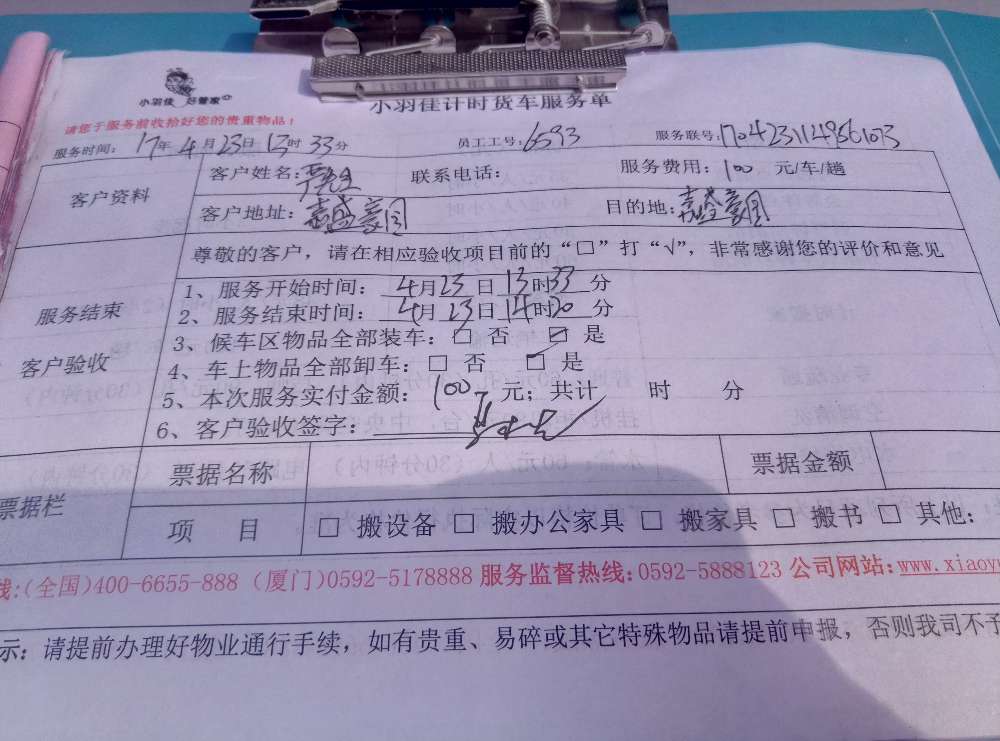 小羽佳 好管家
小羽佳计时货车服务单
请您于服务前收拾好您的贵重物品！
服务时间： 17年 4月 23日 13时 33分 员工工号：6593 服务联号：
客户资料 客户姓名： 联系电话： 服务费用：100 元/车/趟
客户地址：嘉盛豪园 目的地：嘉盛豪园
尊敬的客户，请在相应验收项目前的“□”打“√”，非常感谢您的评价和意见
服务结束
客户验收
1、服务开始时间： 4月 23 日 13时33 分
2、服务结束时间： 4月 23日 14时20 分
3、候车区物品全部装车：□ 否 ☑ 是
4、车上物品全部卸车：□ 否 ☑ 是
5、本次服务实付金额：100 元；共计 时 分
6、客户验收签字：
票据栏 票据名称 票据金额
项 目 □ 搬设备 □ 搬办公家具 □ 搬家具 □ 搬书 □ 其他：
线：(全国)400-6655-888 (厦门)0592-5178888 服务监督热线：0592-5888123 公司网站：www.xiaoy
示：请提前办理好物业通行手续，如有贵重、易碎或其它特殊物品请提前申报，否则我司不予